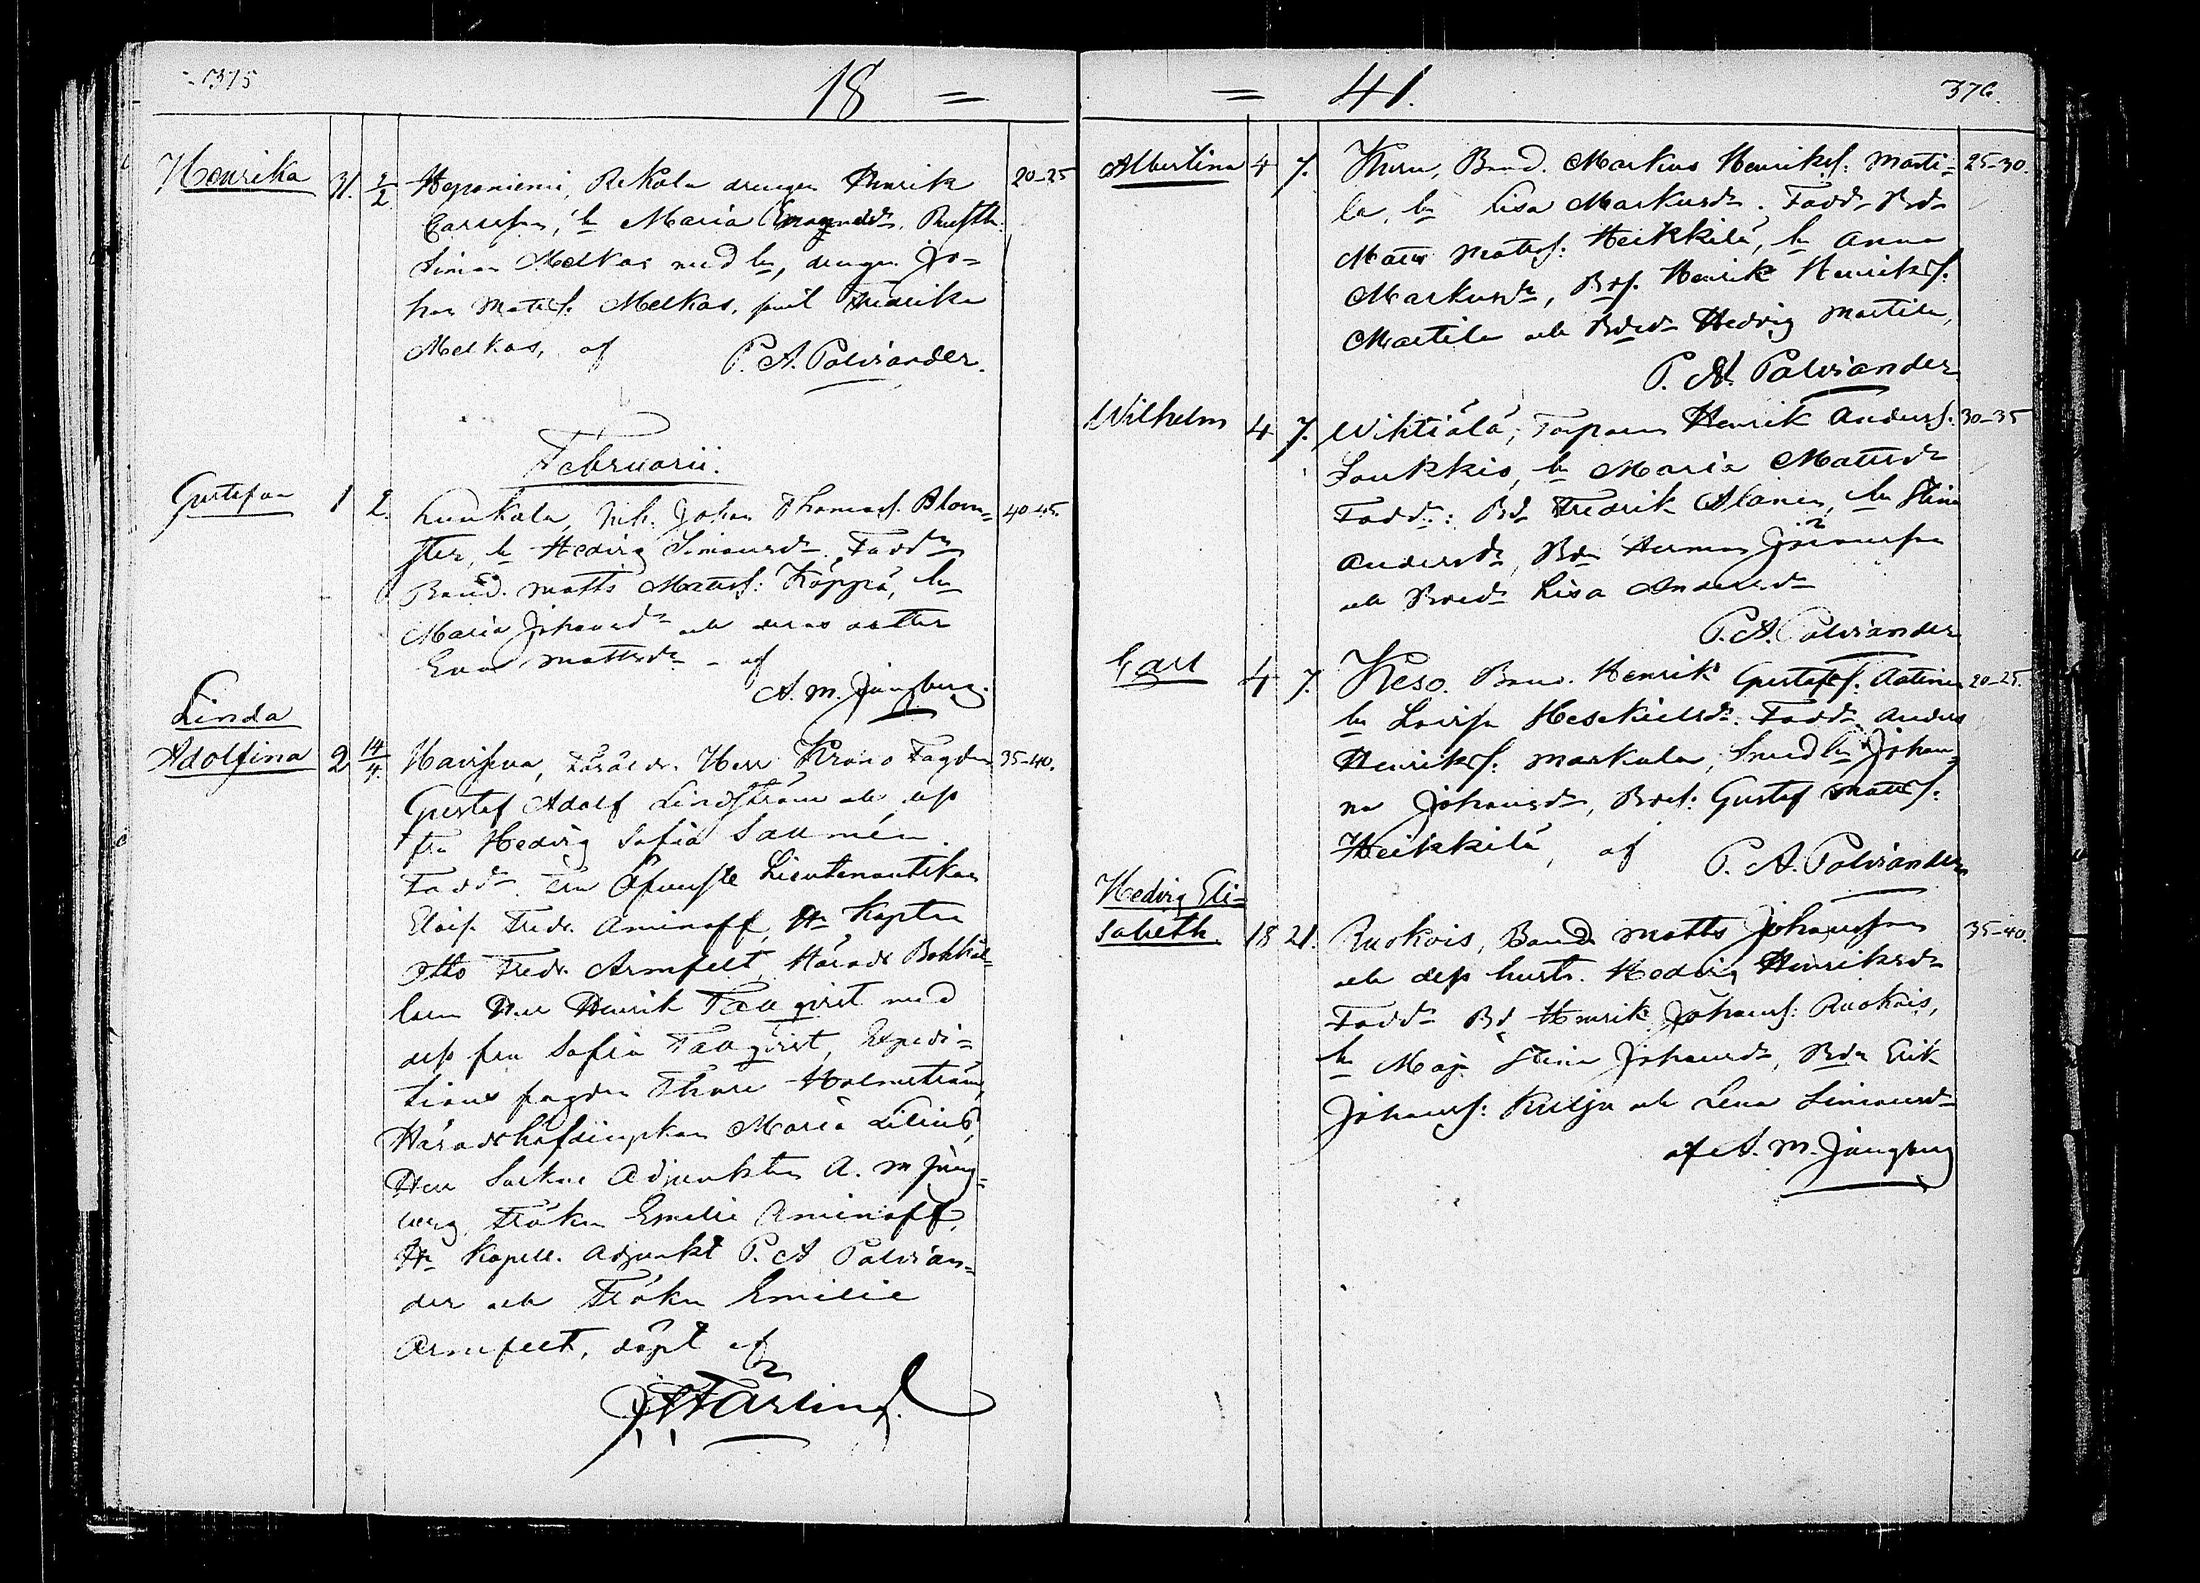 375
18 =
Henrika 31. 2/2 Heponiemi, Rekola drengen Henrik 20-25
Carlsson, h. Maria Rusth.
Simon Melkas med h, drengen Jo=
han Matts. Melkas, pul Fredrika
Melkas, af P. A. Palviander.
Februarii.
Gustafva 1 2. Kuukala, Inh. Johan Thomass. Blom= 40-45.
ster, h. Hedvig Simonsdr. Faddr
Bond. Matts Mattss: Köppä, h.
Maria Johansdr och deras dotter
Eva Mattsdr - af
A. M. Jungberg.
Linda
Adolfina 2 14/4 Haviseva, Föräldr. Herr Krono Fogden 35-40.
Gustaf Adolf Lindström och dess
fru Hedvig Sofia
Faddr. Öfverste Lieutenantskan
Fredr. Aminoff, Hr Kapten
Otto Fredr. Armfelt, Härads Bokhål=
laren Herr Henrik Fallqvist med
dess fru Sofia Fallqvist, Expedi=
tions fogden Thure Holmström,
Häradshöfdingskan Maria Lilius,
Herr Sockne Adjunkten A. M Jung=
berg, Fröken Emelie Aminoff,
Hr Kapell. Adjunkt P. A Palvian=
der och Fröken Emilie
Armfelt, döpt af
Färling.
= 41. 376.
Albertina 4 7. Bond. Markus Henrikss: Marti= 25-30.
la, h. Lisa Markusdr. Faddr Bdn
Matts Mattss: Heikkilä, h. Anna
Markusdr, Bds. Henrik Henrikss.
Martila och Bdedr Hedvig Martila,
P. A. Palviander
Wilhelm 4 7. Wihtiälä, Torparen Henrik Anderss. 30-35
Loukkio, h. Maria Mattsdr
Faddr: Bd. Fredrik Alanen, h. Stina
Andersdr, Bdn Herman Göransson
och Bdedr Lisa Andersdr
P. A. Palviander
Carl 4 7. Keso. Bond. Henrik Gustafss. Antinen 20-25.
h. Lovisa Heskielsdr. Faddr. Anders
Henrikss: Markula, Smed h. Johan=
na Johansdr, Bdes: Gustaf Mattss:
Heikkilä, af P. A. Palviander
Hedvig Eli=
sabeth 18 21. Ruokois, Bonde Matts Johansson 35-40.
och dess hustr. Hedvig Henriksdr
Faddr Bd Henrik Johanss: Ruokois,
h. Maja Stina Johansdr, Bdn Erik
Johanss: Kuilju och Lena Simonsdr
af A. M. Jungberg